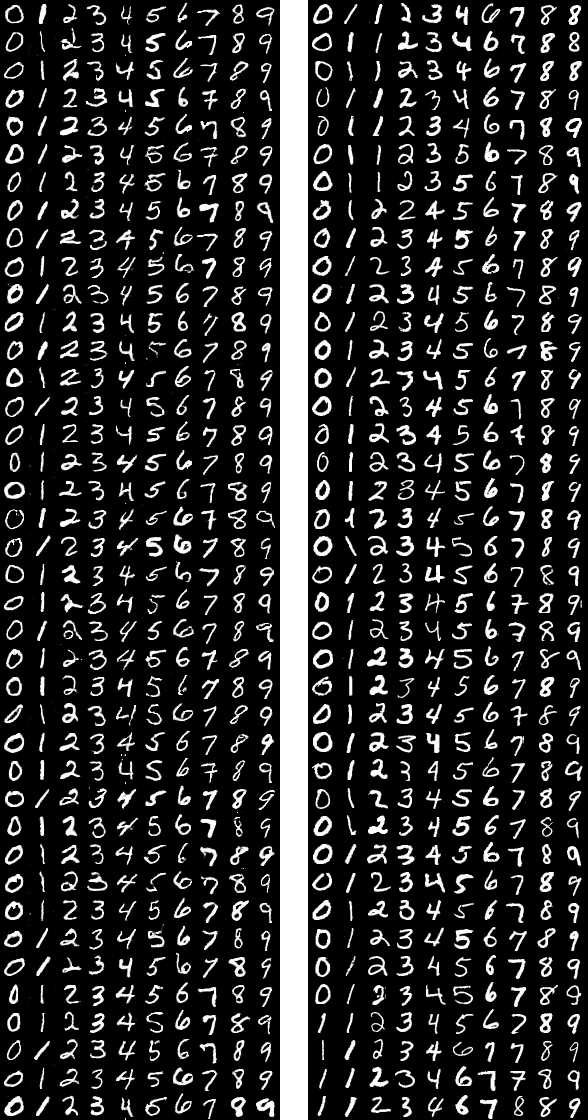 0 1 2 3 4 5 6 7 8 9
0 1 2 3 4 5 6 7 8 9
0 1 2 3 4 5 6 7 8 9
0 1 2 3 4 5 6 7 8 9
0 1 2 3 4 5 6 7 8 9
0 1 2 3 4 5 6 7 8 9
0 1 2 3 4 5 6 7 8 9
0 1 2 3 4 5 6 7 8 9
0 1 2 3 4 5 6 7 8 9
0 1 2 3 4 5 6 7 8 9
0 1 2 3 4 5 6 7 8 9
0 1 2 3 4 5 6 7 8 9
0 1 2 3 4 5 6 7 8 9
0 1 2 3 4 5 6 7 8 9
0 1 2 3 4 5 6 7 8 9
0 1 2 3 4 5 6 7 8 9
0 1 2 3 4 5 6 7 8 9
0 1 2 3 4 5 6 7 8 9
0 1 2 3 4 5 6 7 8 9
0 1 2 3 4 5 6 7 8 9
0 1 2 3 4 5 6 7 8 9
0 1 2 3 4 5 6 7 8 9
0 1 2 3 4 5 6 7 8 9
0 1 2 3 4 5 6 7 8 9
0 1 2 3 4 5 6 7 8 9
0 1 2 3 4 5 6 7 8 9
0 1 2 3 4 5 6 7 8 9
0 1 2 3 4 5 6 7 8 9
0 1 2 3 4 5 6 7 8 9
0 1 2 3 4 5 6 7 8 9
0 1 2 3 4 5 6 7 8 9
0 1 2 3 4 5 6 7 8 9
0 1 2 3 4 5 6 7 8 9
0 1 2 3 4 5 6 7 8 9
0 1 2 3 4 5 6 7 8 9
0 1 2 3 4 5 6 7 8 9
0 1 2 3 4 5 6 7 8 9
0 1 2 3 4 5 6 7 8 9
0 1 2 3 4 5 6 7 8 9
0 1 2 3 4 5 6 7 8 9
0 1 1 2 3 4 6 7 8 8
0 1 1 2 3 4 6 7 8 8
0 1 1 2 3 4 6 7 8 8
0 1 1 2 3 4 6 7 8 9
0 1 1 2 3 4 6 7 8 9
0 1 1 2 3 5 6 7 8 9
0 1 1 2 3 5 6 7 8 9
0 1 2 2 4 5 6 7 8 9
0 1 2 3 4 5 6 7 8 9
0 1 2 3 4 5 6 7 8 9
0 1 2 3 4 5 6 7 8 9
0 1 2 3 4 5 6 7 8 9
0 1 2 3 4 5 6 7 8 9
0 1 2 3 4 5 6 7 8 9
0 1 2 3 4 5 6 7 8 9
0 1 2 3 4 5 6 7 8 9
0 1 2 3 4 5 6 7 8 9
0 1 2 3 4 5 6 7 8 9
0 1 2 3 4 5 6 7 8 9
0 1 2 3 4 5 6 7 8 9
0 1 2 3 4 5 6 7 8 9
0 1 2 3 4 5 6 7 8 9
0 1 2 3 4 5 6 7 8 9
0 1 2 3 4 5 6 7 8 9
0 1 2 3 4 5 6 7 8 9
0 1 2 3 4 5 6 7 8 9
0 1 2 3 4 5 6 7 8 9
0 1 2 3 4 5 6 7 8 9
0 1 2 3 4 5 6 7 8 9
0 1 2 3 4 5 6 7 8 9
0 1 2 3 4 5 6 7 8 9
0 1 2 3 4 5 6 7 8 9
0 1 2 3 4 5 6 7 8 9
0 1 2 3 4 5 6 7 8 9
0 1 2 3 4 5 6 7 8 9
0 1 2 3 4 5 6 7 8 9
1 1 2 3 4 5 6 7 8 9
1 1 2 3 4 6 7 7 8 9
1 1 2 3 4 6 7 7 8 9
1 1 2 3 4 6 7 8 8 9